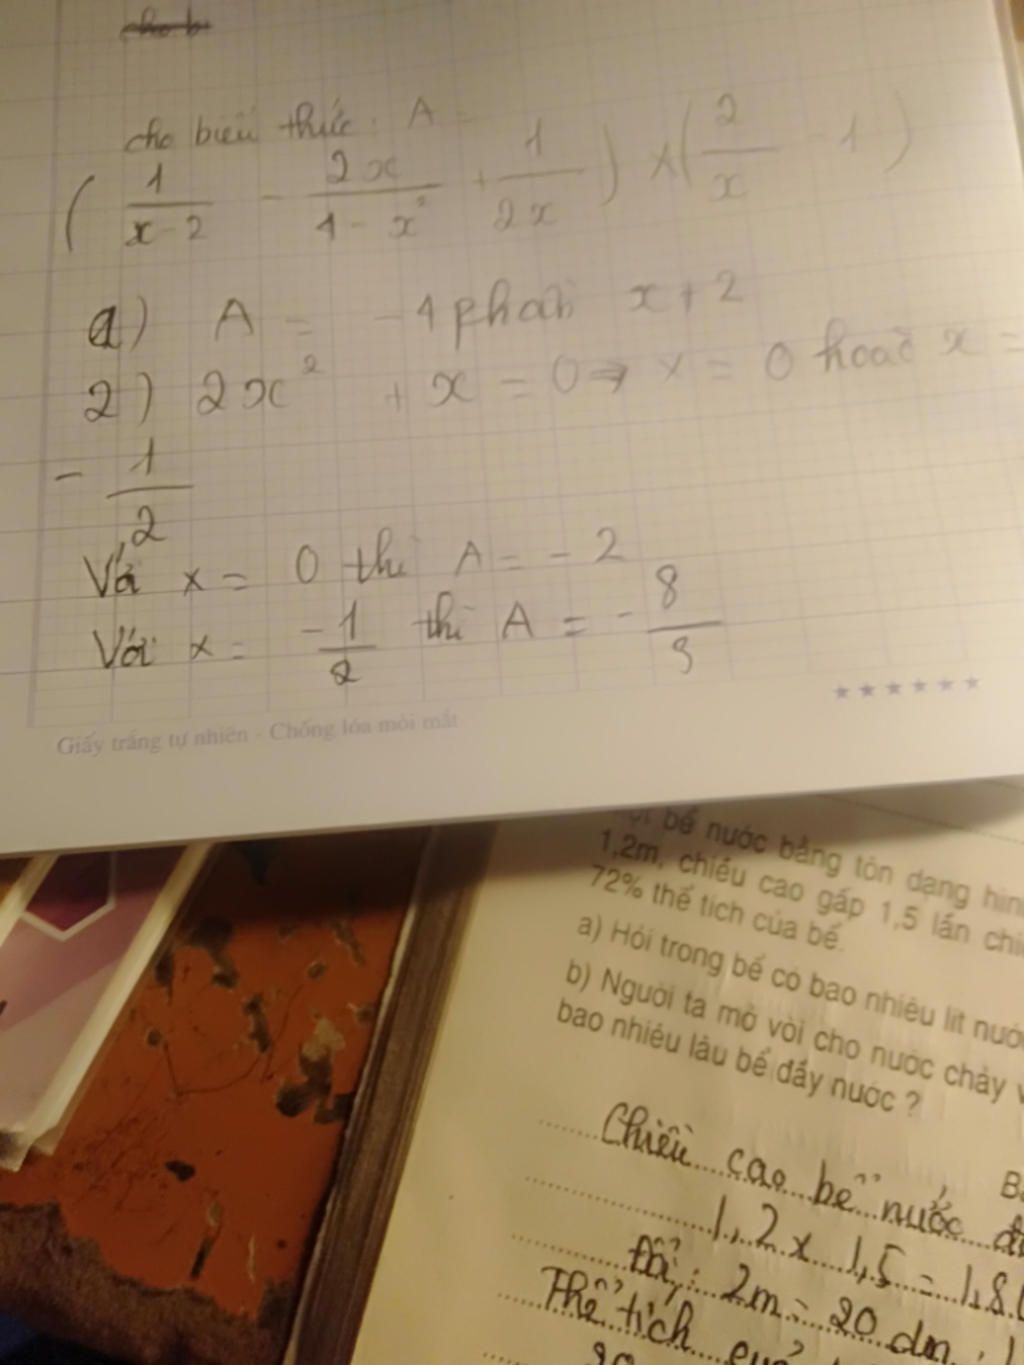 cho biểu thức: A =
( 1/(x-2) - 2x/(4-x²) + 1/2x ) x ( 2/x - 1 )
a) A = -4 phần x+2
2) 2x² + x = 0 => x = 0 hoặc x =
- 1/2
Với x = 0 thì A = -2
Với x = -1/2 thì A = - 8/3
★★★★★★
Giấy trắng tự nhiên - Chống lóa mỏi mắt
bể nước bằng tôn dạng hìn
1,2m, chiều cao gấp 1,5 lần chi
72% thể tích của bể.
a) Hỏi trong bể có bao nhiêu lít nướ
b) Người ta mở vòi cho nước chảy v
bao nhiêu lâu bể đầy nước ?
B
Chiều cao bể nước
1,2 x 1,5 = 1,8
Đổi: 2m = 20 dm
Thể tích